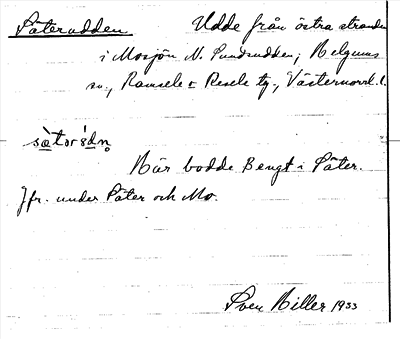 Säterudden. Udde från östra stranden
i Mosjön N. Sundsudden; Helgums
sn., Ramsele o Resele tg., Västernorrl. l.
sætərɜdn̥
Här bodde Bengt i Säter.
Jfr. under Säter och Mo.
Sven Hiller 1933